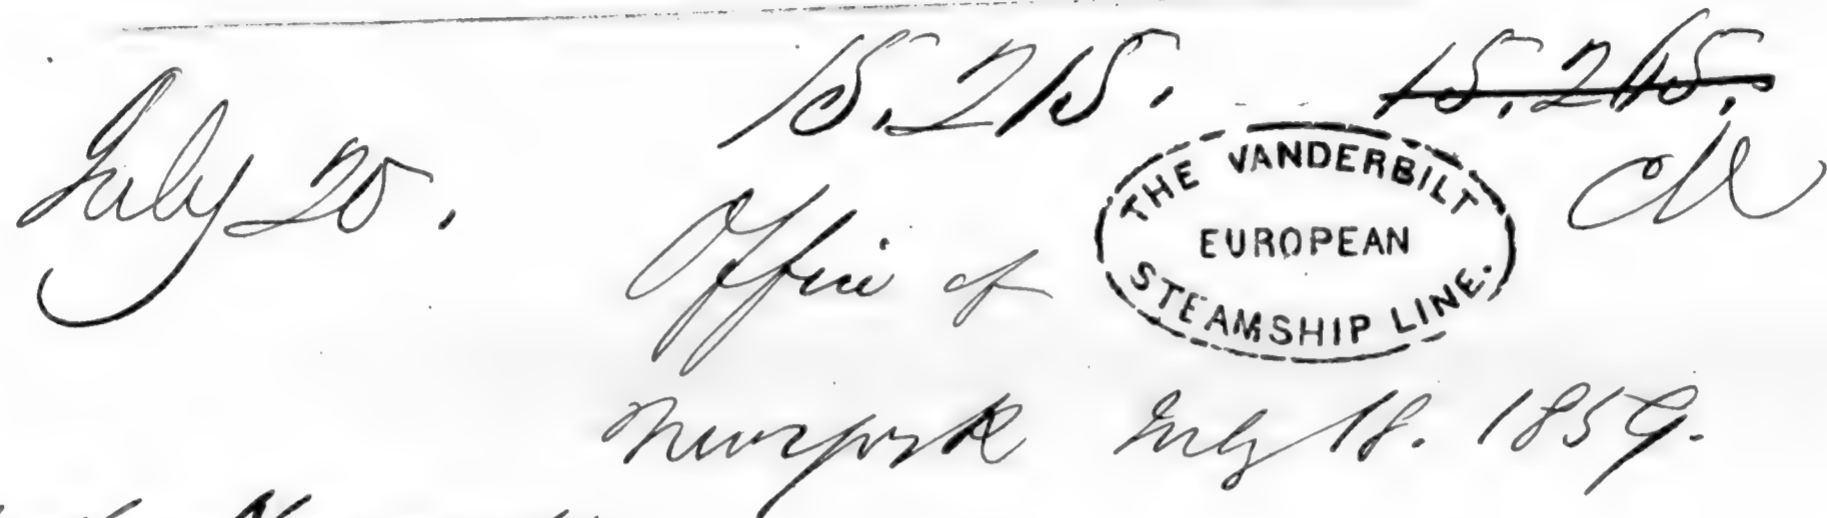 15.215. 15.215.
July 20.
Office of THE VANDERBILT EUROPEAN STEAMSHIP LINE.
Newyork July 18. 1859.